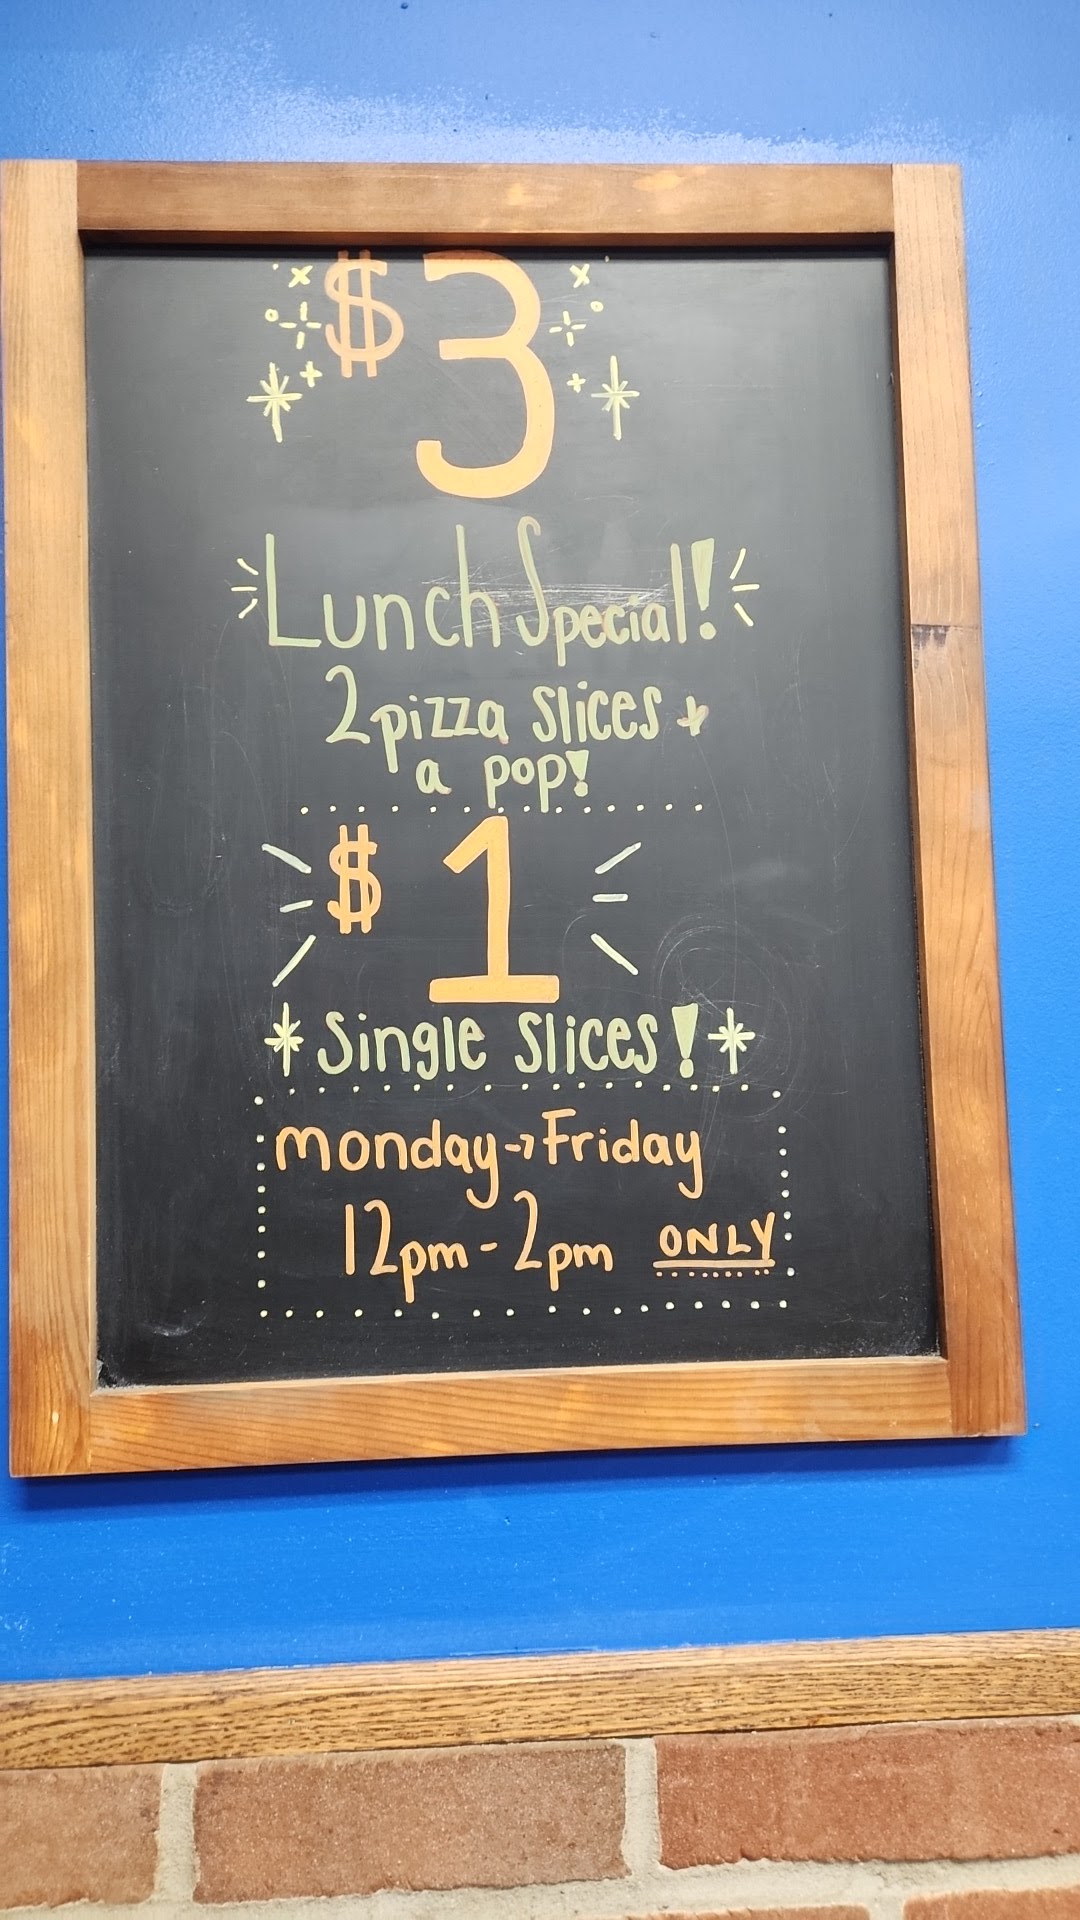 $3
Lunch Special!
2 pizza slices +
a pop!
$1
Single slices!
monday → Friday
12pm - 2pm ONLY